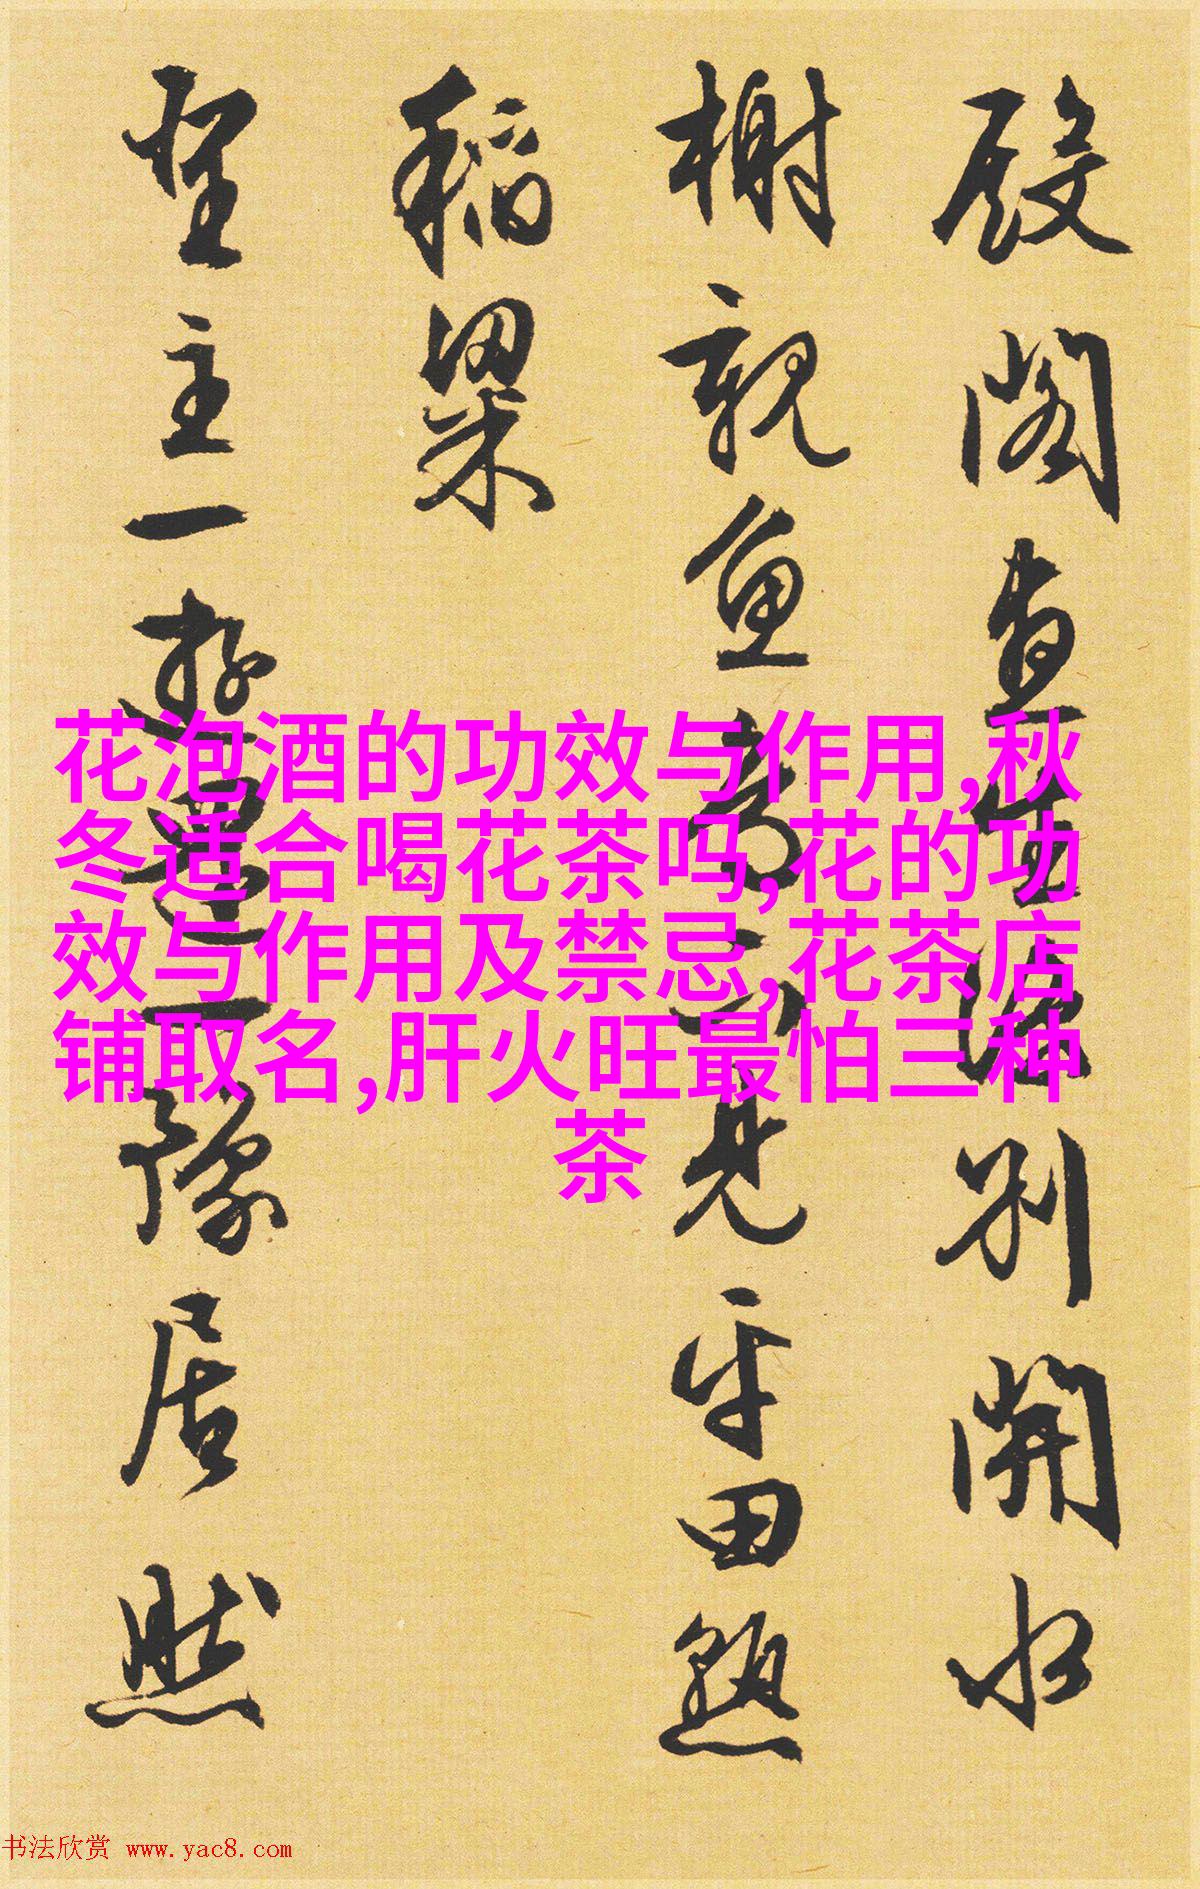 殿閣直生別開水
榭魚見平田熟
稻粱
聖主一遊還一豫居然
花泡酒的功效与作用,秋
冬适合喝花茶吗,花的功
效与作用及禁忌,花茶店
铺取名,肝火旺最怕三种
茶
书法欣赏 www.yac8.com